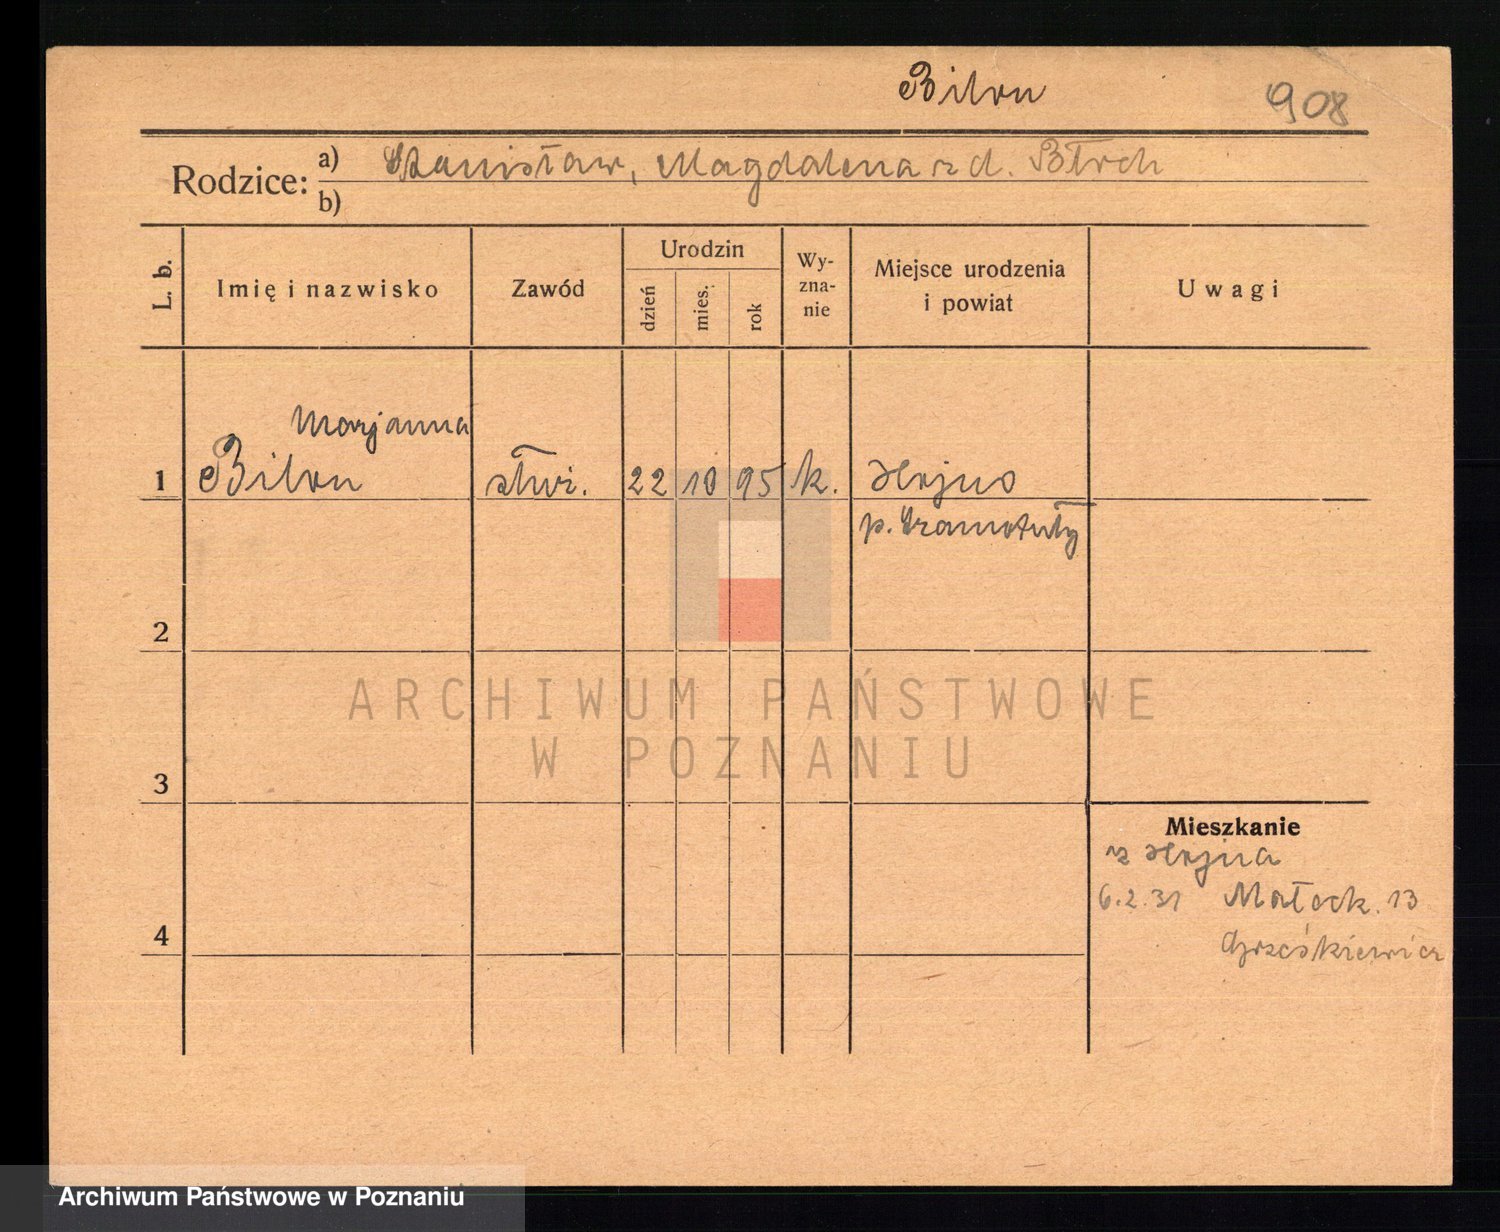 Bilon
908
Rodzice: a) Stanisław, Magdalena z d.
b)
L. b.
Imię i nazwisko
Zawód
Urodzin
dzień
mies.
rok
Wy-
zna-
nie
Miejsce urodzenia
i powiat
Uwagi
Marjanna
1 Bilon 22 10 95 k.
p. Szamotuły
2
3
4
Mieszkanie
z
6.2.31 Małeck. 13
Grześkiewicz
ARCHIWUM PAŃSTWOWE
W POZNANIU
Archiwum Państwowe w Poznaniu